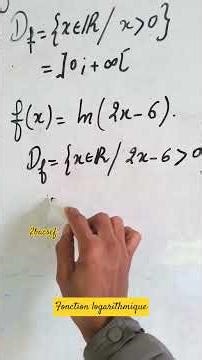 D_f = {x∈ℝ / x>0}
= ]0; +∞[
f(x) = ln(2x-6).
D_f = {x∈ℝ / 2x-6>0
2bacsef
Fonction logarithmique